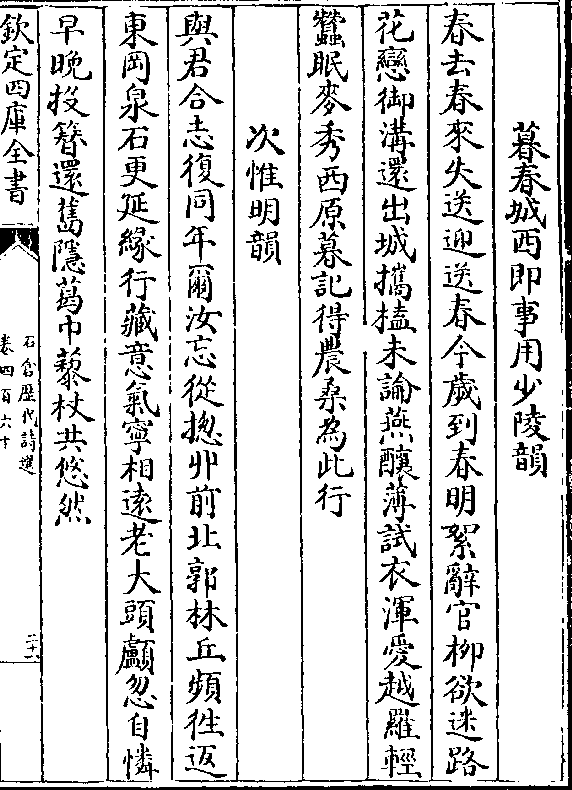 暮春城西即事用少陵韻
春去春來失送迎送春今歲到春明絮辭官柳欲迷路
花戀御溝還出城攜榼未論燕釀薄試衣渾愛越羅輕
蠶眠麥秀西原暮記得農桑為此行
次惟明韻
與君合志復同年爾汝忘從揔丱前北郭林丘頻徃返
東岡泉石更延緣行藏意氣寧相遠老大頭顱忽自憐
早晚投簪還舊隱葛巾藜杖共悠然
欽定四庫全書
石倉歷代詩選
卷四百六十
二十一